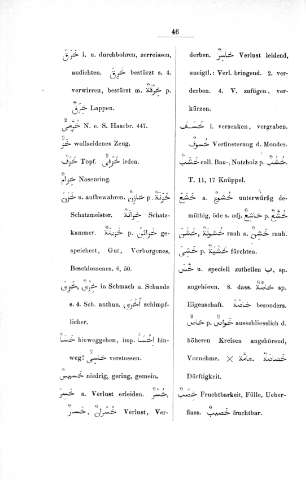 46
خَرَقَ i. u. durchbohren, zerreissen,
andichten. خَرِقَ bestürzt s. 4.
verwirren, bestürzt m. خِرْقَة p.
خِرَق Lappen.
N. e. S. Hamobr. 447.
خَزّ wollseidenes Zeug.
خَزَف Topf. خَزَفِىّ irden.
خِزَام Nasenring.
خَزَنَ u. aufbewahren. خَازِن p. خَزَنَة
Schatzmeister. خِزَانَة Schatz-
kammer. خَزِينَة p. خَزَائِن ge-
speichert, Gut, Verborgenes,
Beschlossenes. 6, 50.
خَزِىَ, خِزْى in Schmach u. Schande
s. 4. Sch. anthun. أَخْزَى schimpf-
licher.
خَسَأَ hinweggehen, imp. اِخْسَأْ hin-
weg! خَاسِئ verstossen.
خَسِيس niedrig, gering, gemein.
خَسِرَ a. Verlust erleiden. خَسَار,
خُسْر, خُسْرَان Verlust, Ver-
derben. خَاسِر Verlust leidend,
uneigtl.: Verl. bringend. 2. ver-
derben. 4. V. zufügen, ver-
kürzen.
خَسَفَ i. versenken, vergraben.
خُسُوف Verfinsterung d. Mondes.
خَشَب coll. Bau-, Nutzholz p. خُشُب
T. 11, 17 Knüppel.
خَشَعَ a. خُشُوع unterwürfig de-
müthig, öde s. adj. خَاشِع p. خُشَّع
خَشُنَ, خُشُونَة rauh s. خَشِن rauh a.
خَشِىَ p. خَشْيَة fürchten.
خَصَّ u. speciell zutheilen ب sp.
angehören. 8. dass. خَاصَّة sp.
Eigenschaft. خَاصَّةً besonders.
خَاصّ p. خَوَاصّ ausschliesslich d.
höheren Kreisen angehörend,
Vornehme. × عَامَّة. خَصَاصَة
Dürftigkeit.
خِصْب Fruchtbarkeit, Fülle, Ueber-
fluss. خَصِيب fruchtbar.